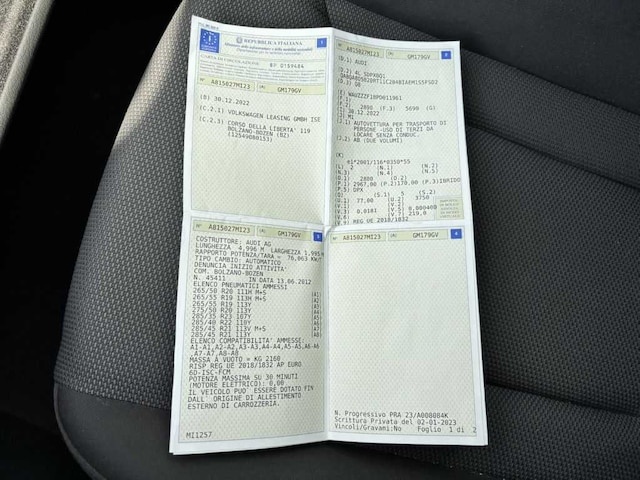 REPUBBLICA ITALIANA
1
CARTA DI CIRCOLAZIONE
N° A815027MI23 (A) GM179GV
(B) 30.12.2022
(C.2.1) VOLKSWAGEN LEASING GMBH ISE
(C.2.3) CORSO DELLA LIBERTA' 119
BOLZANO-BOZEN (BZ)
(12549080153)
2
N° A815027MI23 (A) GM179GV
(D.1) AUDI
(D.3) Q8
(E) WAUZZZF18PD011961
(I) 30.12.2022
(J) M1
(J.1) AUTOVETTURA PER TRASPORTO DI
PERSONE -USO DI TERZI DA
LOCARE SENZA CONDUC.
(J.2) AB (DUE VOLUMI)
(K)
e1*2001/116*0350*55
(L) 2 (N.1) (N.2)
(N.3) (N.4) (N.5)
(O.1) 2800 (O.2)
(P.1) 2967,00 (P.2)170,00 (P.3)IBRIDO
(P.5) DPX
(Q) (S.1) 5 (S.2)
(U.1) 77,00 (U.2) 3750
(V.9) REG UE 2018/1832
3
N° A815027MI23 (A) GM179GV
COSTRUTTORE: AUDI AG
LUNGHEZZA 4,996 M LARGHEZZA 1,995
RAPPORTO POTENZA/TARA = 76,063 KW/
TIPO CAMBIO: AUTOMATICO
DENUNCIA INIZIO ATTIVITA'
COM. BOLZANO-BOZEN
N. 45411 IN DATA 13.06.2012
ELENCO PNEUMATICI AMMESSI
265/50 R20 111H M+S (A1)
265/55 R19 113H M+S (A2)
265/55 R19 113Y (A3)
275/50 R20 113Y (A4)
285/35 R23 107Y (A5)
285/40 R22 110Y (A6)
285/45 R21 113V M+S (A7)
285/45 R21 113Y (A8)
ELENCO COMPATIBILITA' AMMESSE:
A1-A1,A2-A2,A3-A3,A4-A4,A5-A5,A6-A6
,A7-A7,A8-A8
MASSA A VUOTO = KG 2160
RISP REG UE 2018/1832 AP EURO
6D-ISC-FCM
POTENZA MASSIMA SU 30 MINUTI
(MOTORE ELETTRICO): 0,00
IL VEICOLO PUO' ESSERE DOTATO FIN
DALL' ORIGINE DI ALLESTIMENTO
ESTERNO DI CARROZZERIA.
MI1257
4
N° A815027MI23 (A) GM179GV
N. Progressivo PRA 23/A008084K
Scrittura Privata del 02-01-2023
Vincoli/Gravami:No Foglio 1 di 2